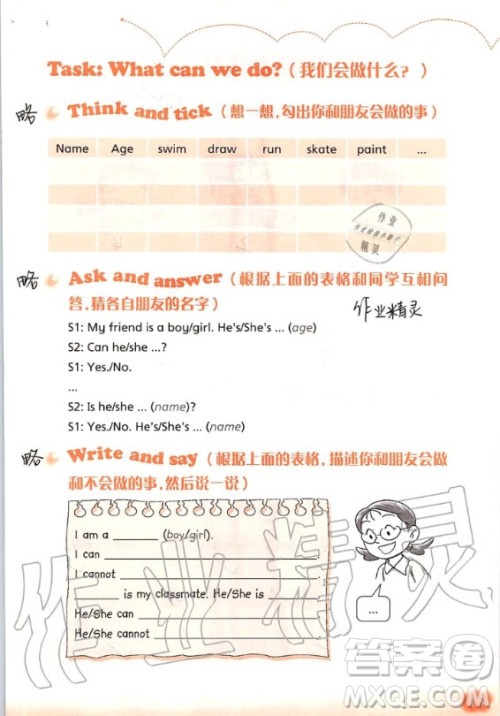 Task: What can we do?（我们会做什么？）
略 Think and tick（想一想，勾出你和朋友会做的事）
Name Age swim draw run skate paint ...
作业
精灵
略 Ask and answer（根据上面的表格和同学互相问
答，猜各自朋友的名字） 作业精灵
S1: My friend is a boy/girl. He's/She's ... (age)
S2: Can he/she ...?
S1: Yes./No.
...
S2: Is he/she ... (name)?
S1: Yes./No. He's/She's ... (name).
略 Write and say（根据上面的表格，描述你和朋友会做
和不会做的事，然后说一说）
I am a ________ (boy/girl).
I can ________
I cannot ________
________ is my classmate. He/She is ________
He/She can ________
He/She cannot ________
...
作业精灵
答案卷
MXQE.COM